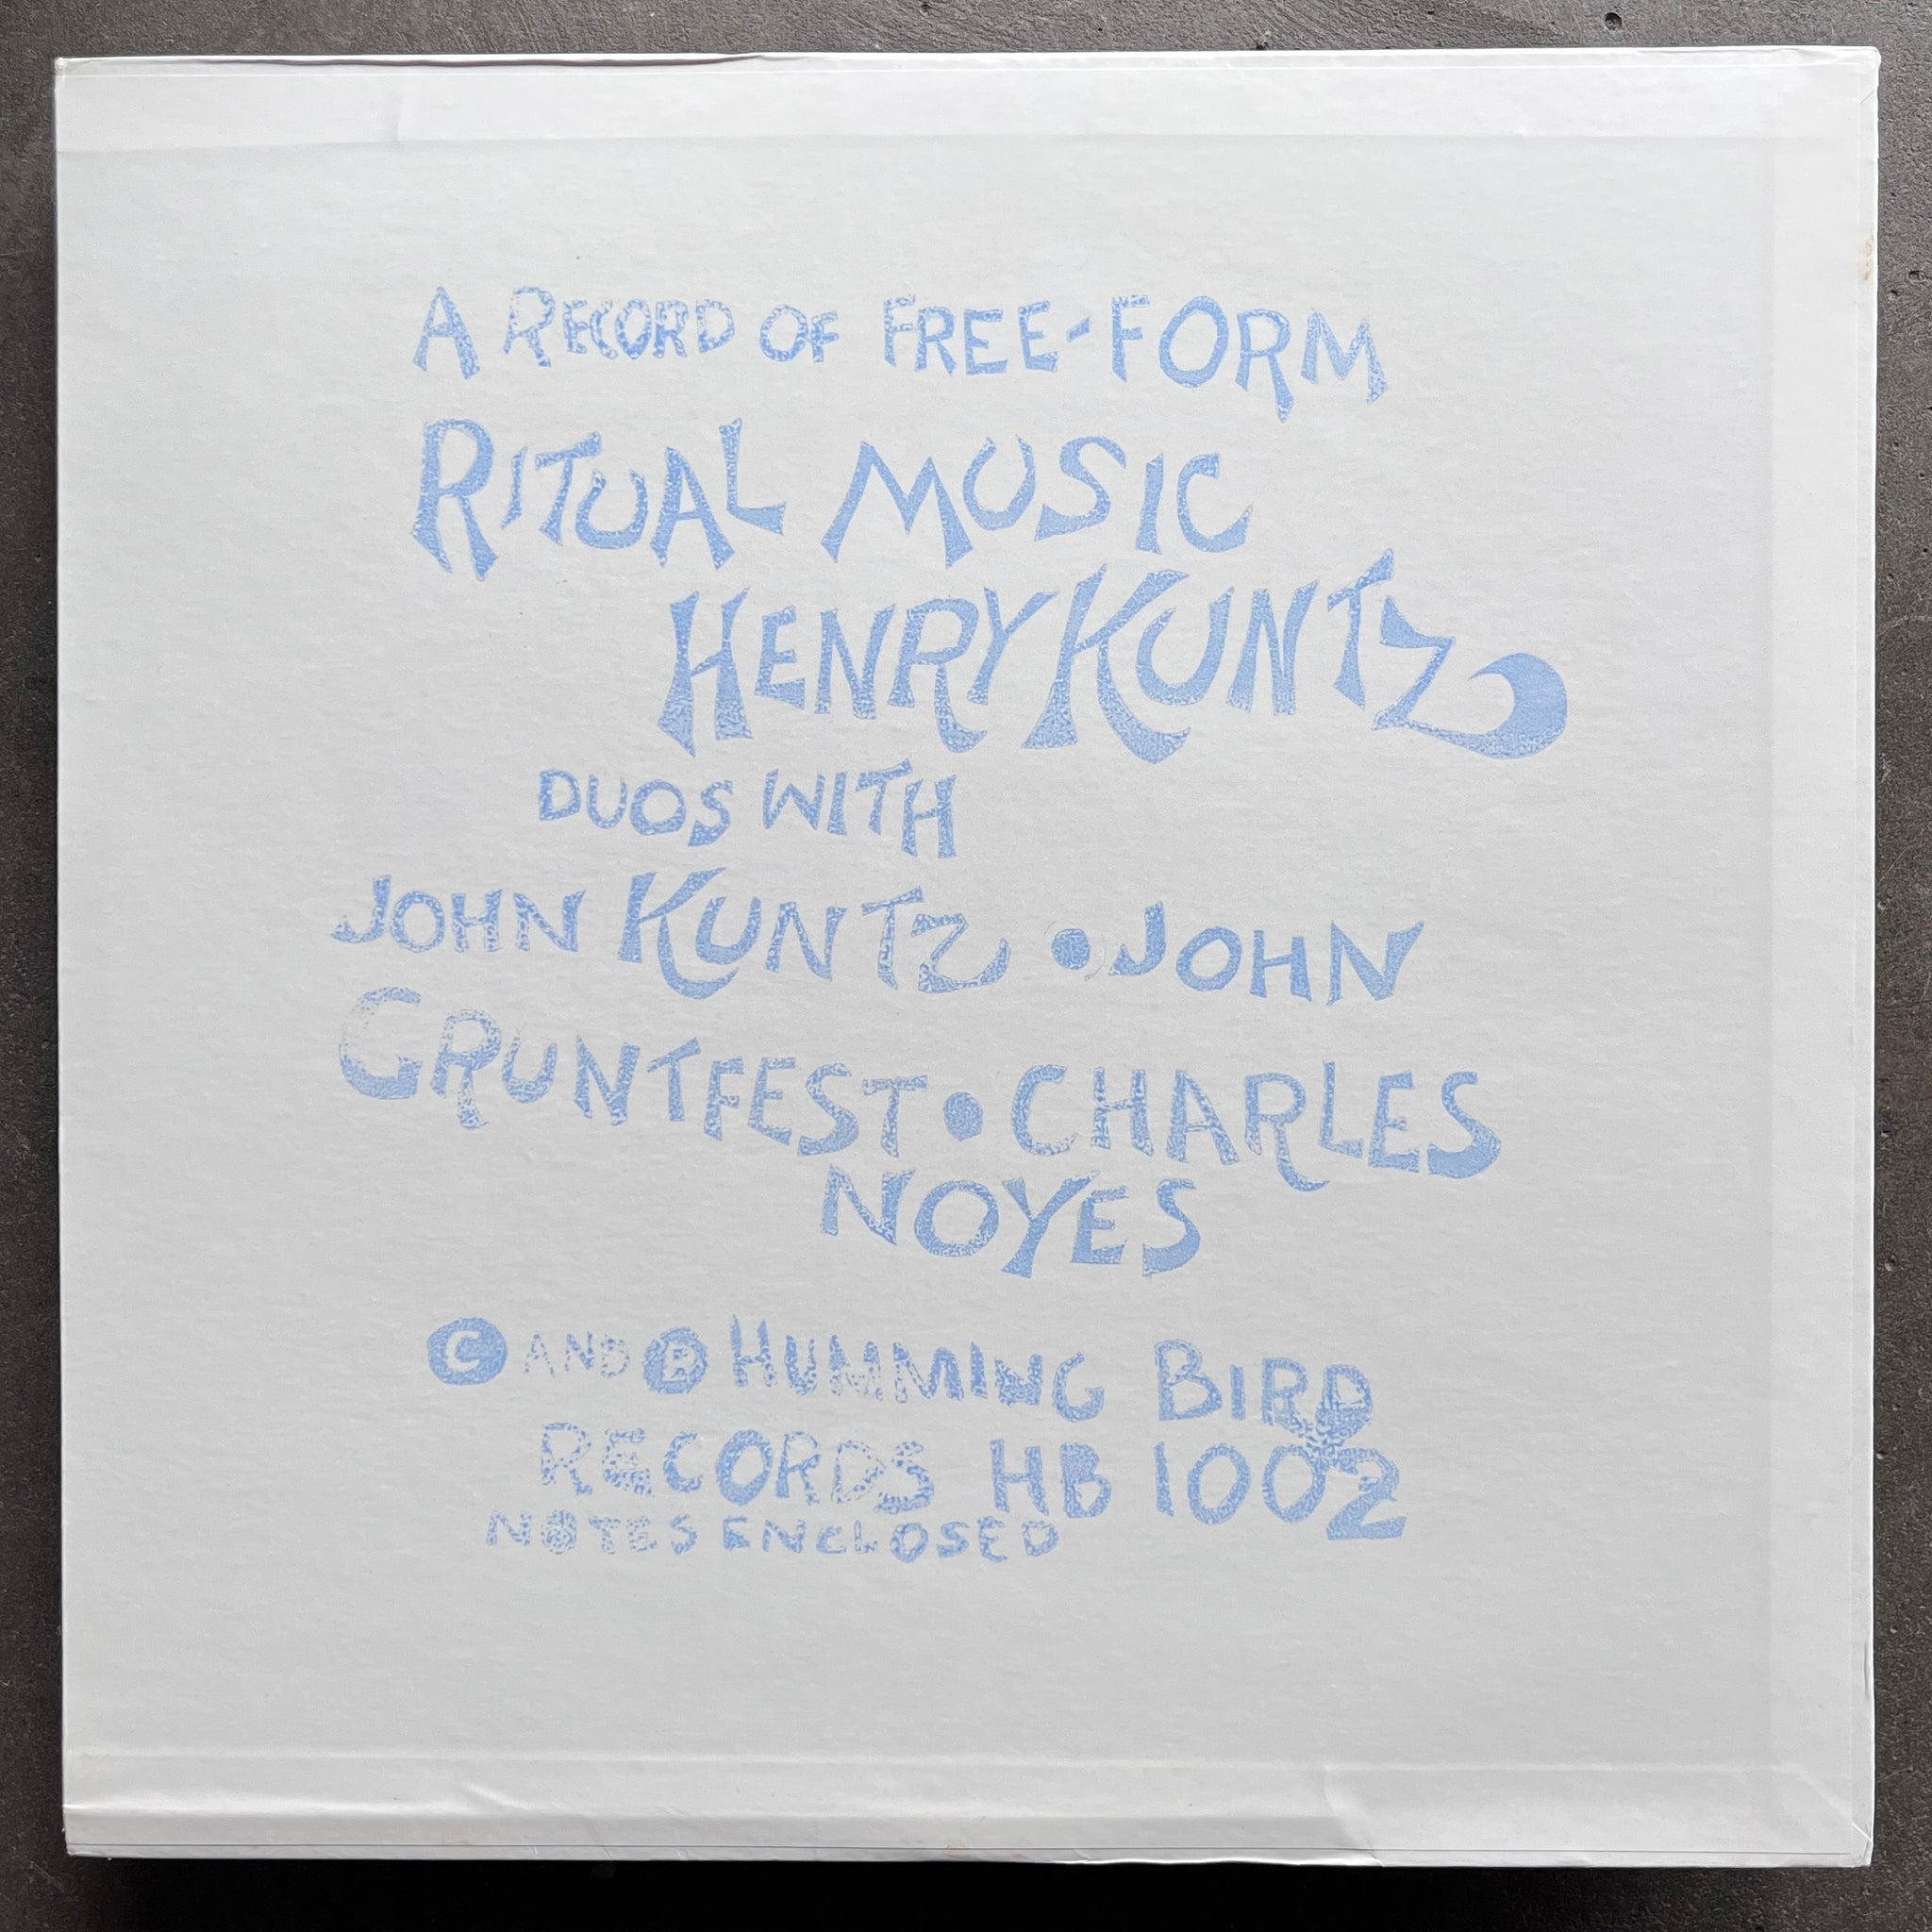 A RECORD OF FREE-FORM
RITUAL MUSIC
HENRY KUNTZ
DUOS WITH
JOHN KUNTZ • JOHN
GRUNTFEST • CHARLES
NOYES
© AND ℗ HUMMING BIRD
RECORDS HB 1002
NOTES ENCLOSED